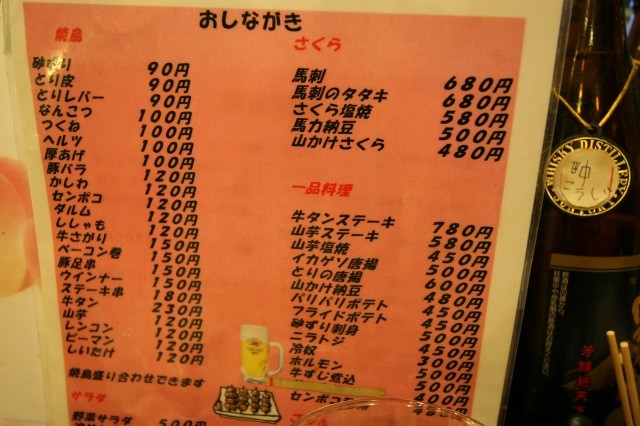 おしながき
焼鳥
砂ずり 90円
とり皮 90円
とりレバー 90円
なんこつ 100円
つくね 100円
ヘルツ 100円
厚あげ 100円
豚バラ 120円
かしわ 120円
センポコ 120円
ダルム 120円
ししゃも 120円
牛さがり 150円
ベーコン巻 150円
豚足串 150円
ウインナー 150円
ステーキ串 180円
牛タン 230円
山芋 120円
レンコン 120円
ピーマン 120円
しいたけ 120円
焼鳥盛り合わせできます
サラダ
野菜サラダ 500円
さくら
馬刺 680円
馬刺のタタキ 680円
さくら塩焼 580円
馬力納豆 500円
山かけさくら 480円
一品料理
牛タンステーキ 780円
山芋ステーキ 580円
山芋塩焼 450円
イカゲソ唐揚 500円
とりの唐揚 600円
山かけ納豆 480円
パリパリポテト 450円
フライドポテト 450円
砂ずり刺身 500円
ニラトジ 450円
冷奴 300円
ホルモン 500円
牛すじ煮込 500円
400円
センポコ
WHISKY DISTILLERY